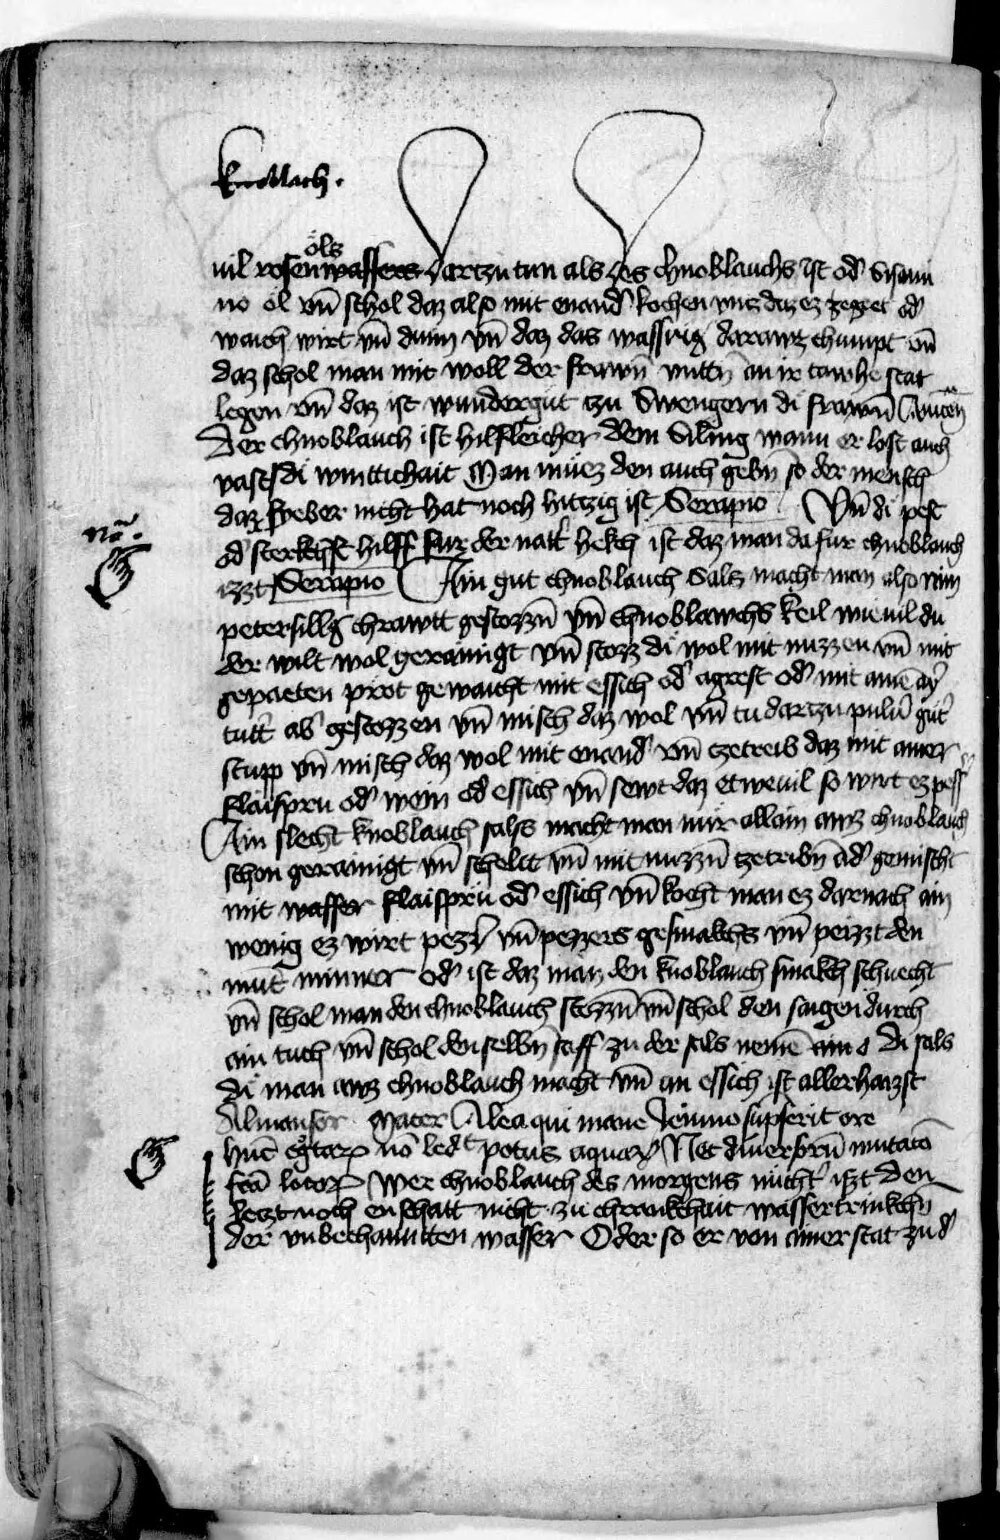 knoblach.
öls
vil rosenwassers dartzu tun als des chnoblauchs ist od̉ Sisami
no öl vn̄ schol daz also mit enand̉ kochen vntz daz ez zeget od̉
waich wirt vn̄ dunn vn̄ daz das wassrig darawz chumpt vn̄
daz schol man mit woll der frawn̄ vnttn̄ an ir tawhe stat
legen vn̄ daz ist wundergut tzu Swengern di frawn̄ Auicen̄
Der chnoblauch ist hilfleicher dem Siling wann er lost auch
vast di winttichait Man muez den auch gebn̄ so der mensch
daz fyeber nicht hat noch hitzig ist Serapio Vn̄ di pest
No᷑.
od̉ sterkchst hilff fur der natt̉ hekch ist daz man da fur chnoblauch
izzt Serapio Ain gut chnoblauch Sals macht man also nim
petersillg chrawtt gestozzn̄ vn̄ chnoblawchs keil wieuil du
der wilt wol geramigt vn̄ stozz di wol mit nuzzen vn̄ mit
gepaeten prot gewaicht mit essich od̉ agrest od̉ mit aime᷑ aỷ
tutt̉ ab̉ gestozzen vn̄ misch daz wol vn̄ tu dartzu pulủ gut̉
stupp vn̄ misch daz wol mit enand̉ vn̄ tzetreib daz mit ainer
flaisprü od̉ wein od̉ essich vn̄ sewt daz etweuil so wirt ez pess̉
Ain slecht knoblauch salss macht man nur allain awz chnoblauch
schon geramigt vn̄ schelct vn̄ mit nuzzn̄ tzetribn̄ od̉ gemischt
mit wasser flaisprü od̉ essich vn̄ kocht man ez darnach ain
wenig ez wirt pezz̉ vn̄ pezzers gesmakchs vn̄ peizzt den
mut minner od̉ ist daz man den knoblauch smakch schuecht
vn̄ schol man den chnoblauch stozzn̄ vn̄ schol den saigen durch
ain tuch vn̄ schol denselbn̄ saff zu der sals neme᷑ Di sals
di man awz chnoblauch macht vn̄ an essich ist allerhaizst
Almansor Macer Alea qui mane Jeiuno sūpserit ore
Hunc no᷑ ledꝰt potus aquarꝝ Nec diuersoru᷑ mutaco᷑
locorꝝ Wer chnoblauch des morgens nucht̉ iszt Den
letzt noch enschatt nicht zu chrankchait wassertrinkchn̄
der vnbechanntten wasser Oder so er von ainer stat zu d̉